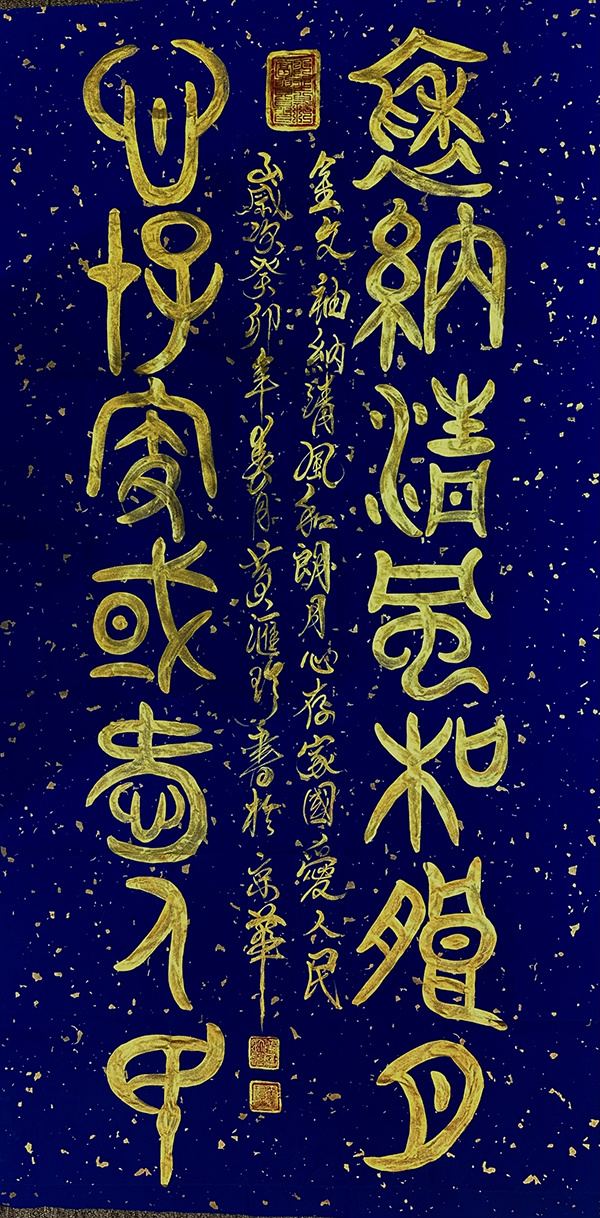 袖納清風和朗月
金文 袖納清風和朗月心存家國愛人民
歲次癸卯年 月黄滙珍書於京華
心存家或愛人民